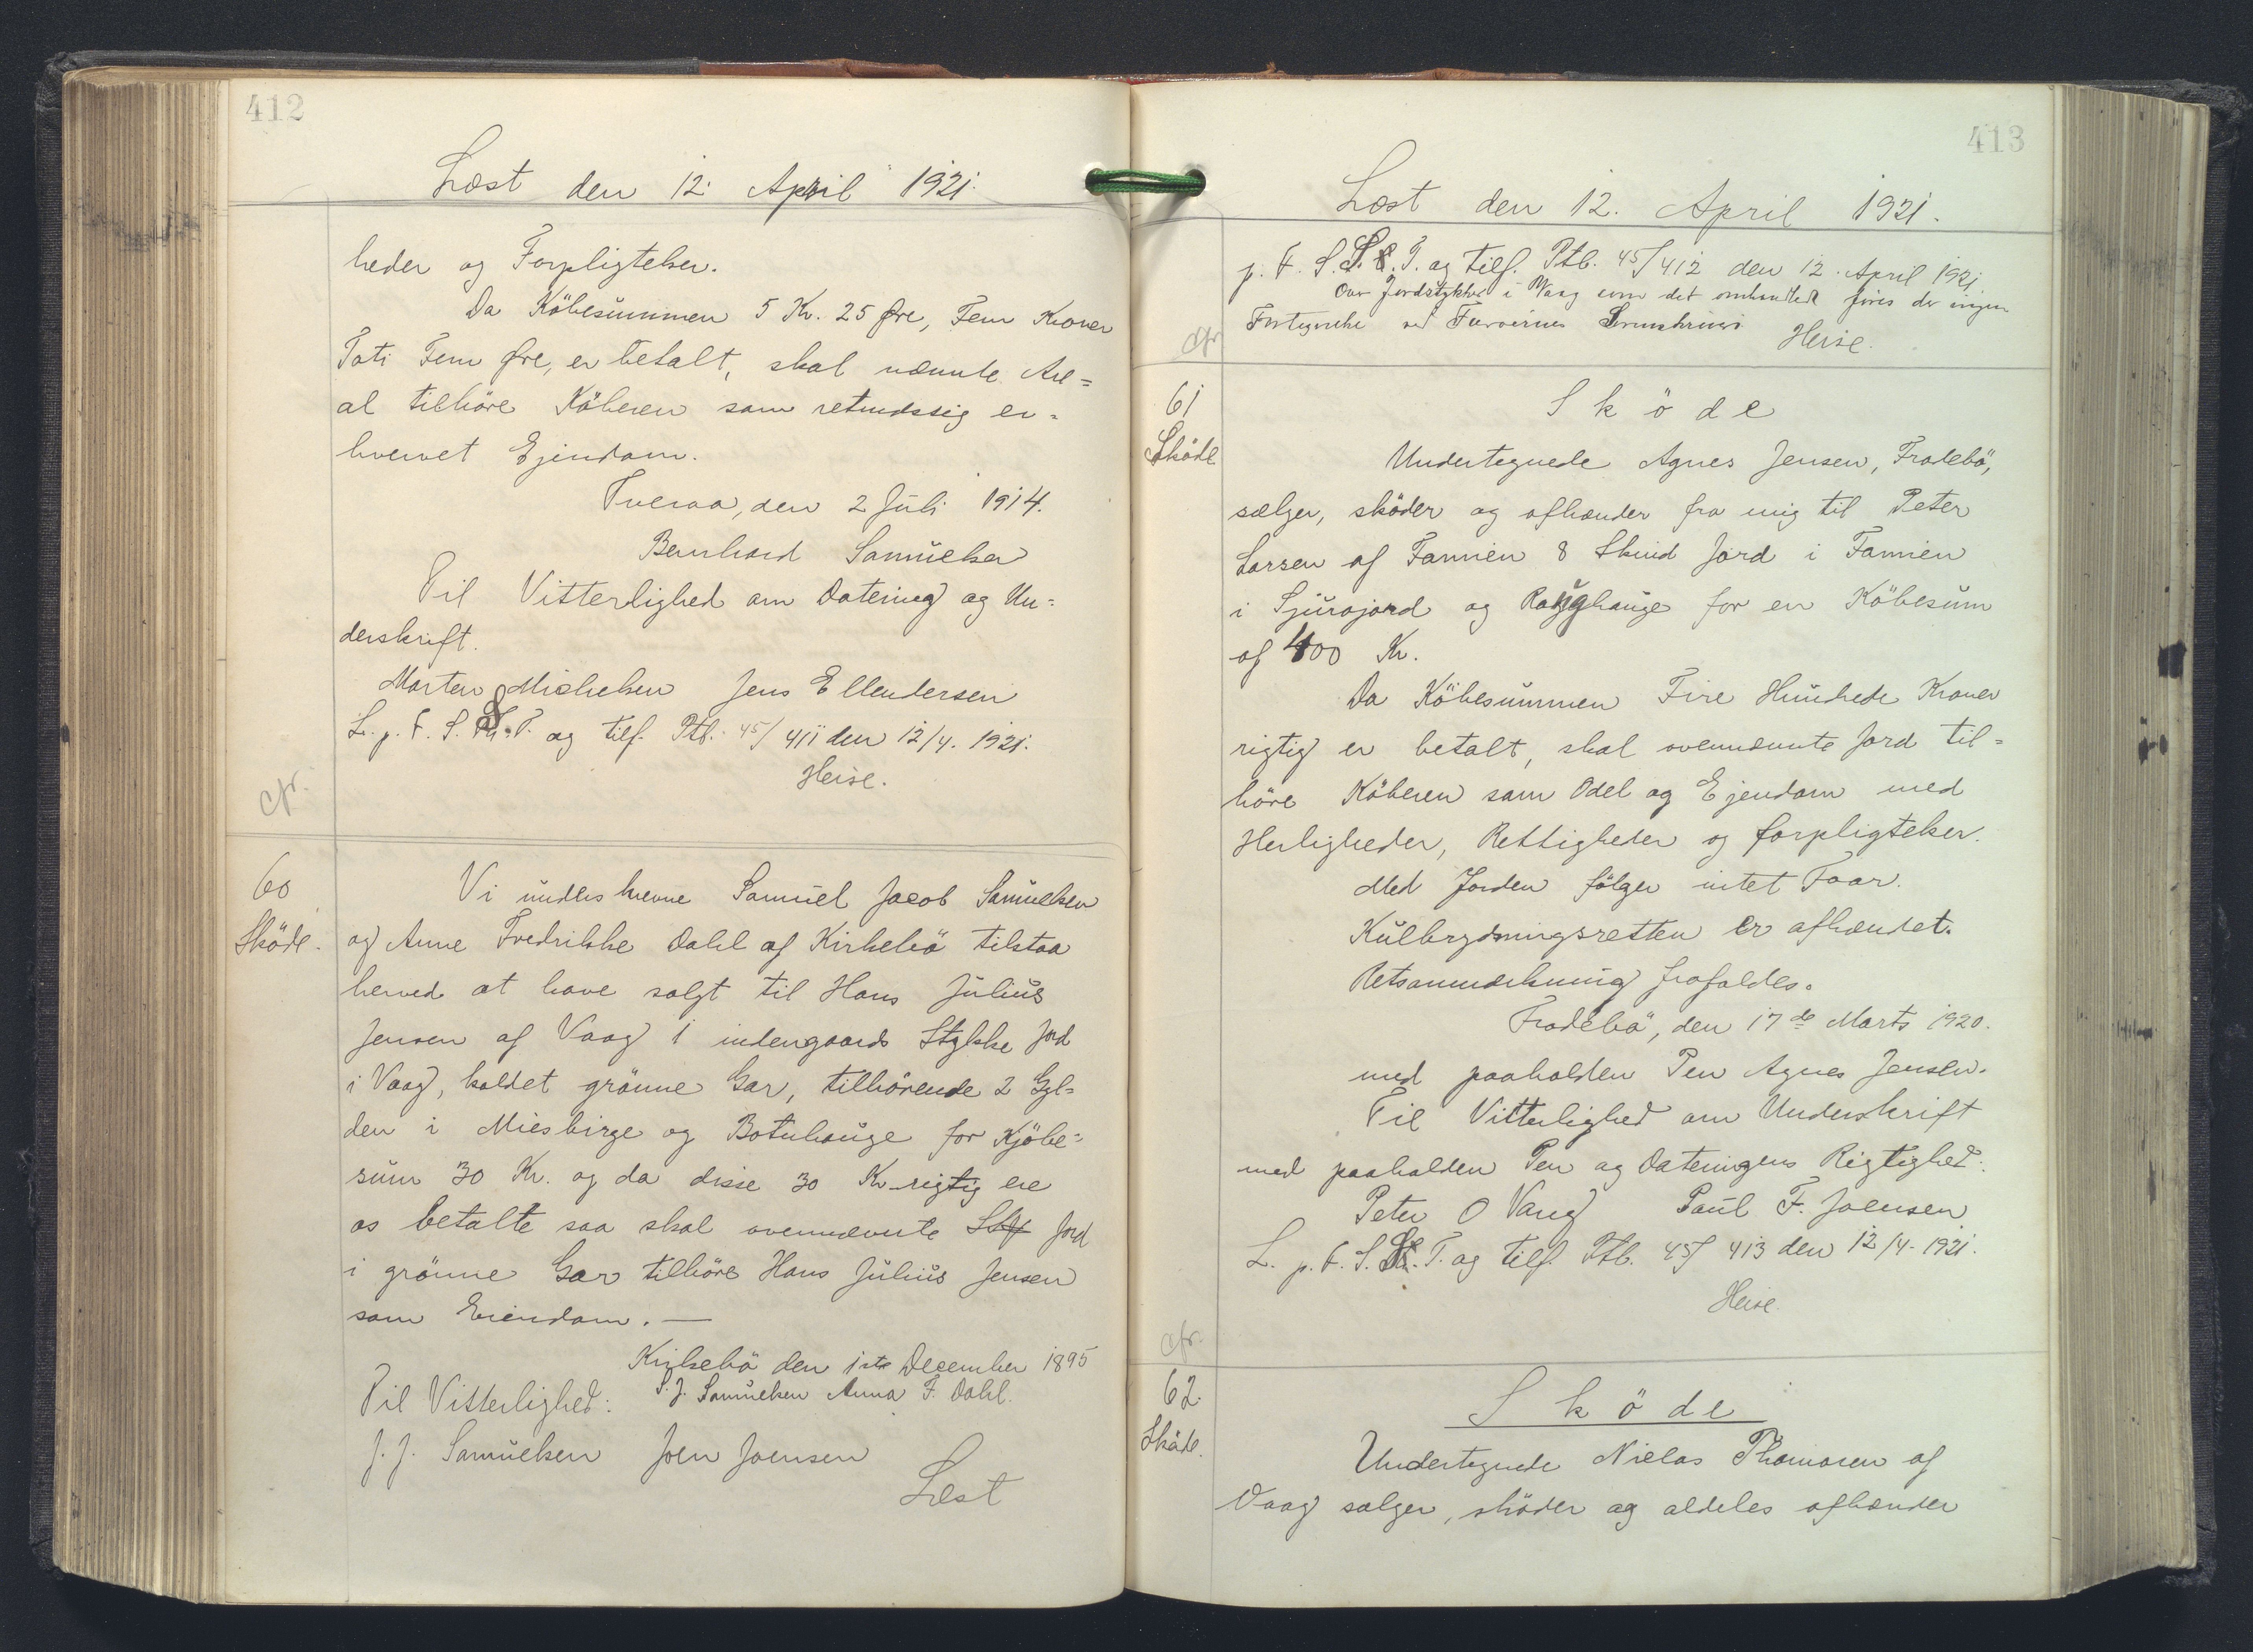 412
Læst den 12. April 1921.
heder og Forpligtelser.
Da Köbesummen 5 Kr. 25 Øre, Fem Kroner
Toti Fem Øre, er betalt, skal nævnte Are=
al tilhöre Köberen som retmæssig er=
hvervet Ejendom.
Tveraa, den 2 Juli 1914.
Bernhard Samuelsen
Til Vitterlighed om Datering og Un=
derskrift.
Morten Michelsen Jens Ellendersen
L. p. F. S. S. T. og tilf. Ptb. 45/411 den 12/4. 1921.
Heise.
cfr.
60
Sköde.
Vi underskrevne Samuel Jacob Samuelsen
og Anne Fredrikke Dahl af Kirkebö tilstaa
herved at have solgt til Hans Julius
Jensen af Vaag 1 indengaards Stykke Jord
i Vaag, kaldet grönne Gar, tilhörende 2 Gyl=
den i Miesbirge og Botnhauge for Kjöbe=
sum 30 Kr. og da disse 30 Kr rigtig ere
os betalte saa skal ovennævnte Sty Jord
i grönne Gar tilhöre Hans Julius Jensen
som Eiendom. —
Kirkebö den 1ste December 1895
Til Vitterlighed: S. J. Samuelsen Anna F. Dahl.
J. J. Samuelsen Joen Joensen
Læst
413
Læst den 12. April 1921.
p. F. S. S. T. og tilf. Ptb. 45/412 den 12. April 1921
Over Jordstykker i Vaag som det omhandlede föres der ingen
Fortegnelse ved Færøernes Sorenskriveri
Heise.
cfr
61
Sköde
Sköde
Undertegnede Agnes Jensen, Frodebö,
sælger, sköder og afhænder fra mig til Peter
Larsen af Famien 8 Skind Jord i Famien
i Sjurajord og Rougghauge for en Köbesum
af 400 Kr.
Da Köbesummen Fire Hundrede Kroner
rigtig er betalt, skal ovennævnte Jord til=
höre Köberen som Odel og Ejendom med
Herligheder, Rettigheder og forpligtelser.
Med Jorden fölger intet Faar.
Kulbrydningsretten er afhændet.
Retsanmærkning frafaldes.
Frodebö, den 17de Marts 1920.
med paaholden Pen Agnes Jensen.
Til Vitterlighed om Underskrift
med paaholden Pen og Dateringens Rigtighed:
Peter O Vang Paul F. Joensen
L. p. F. S. S. T. og tilf. Ptb. 45/413 den 12/4-1921.
Heise.
cfr.
62.
Sköde.
Sköde
Undertegnede Nielas Thomasen af
Vaag sælger, sköder og aldeles afhænder